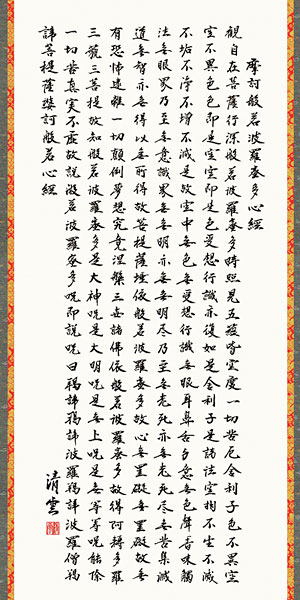 摩訶般若波羅蜜多心經
觀自在菩薩行深般若波羅蜜多時照見五蘊皆空度一切苦厄舍利子色不異空
空不異色色即是空空即是色受想行識亦復如是舍利子是諸法空相不生不滅
不垢不淨不增不減是故空中無色無受想行識無眼耳鼻舌身意無色聲香味觸
法無眼界乃至無意識界無無明亦無無明尽乃至無老死亦無老死尽無苦集滅
道無智亦無得以無所得故菩提薩埵依般若波羅蜜多故心無罣礙無罣礙故無
有恐怖遠離一切顛倒夢想究竟涅槃三世諸佛依般若波羅蜜多故得阿耨多羅
三藐三菩提故知般若波羅蜜多是大神呪是大明呪是無上呪是無等等呪能除
一切苦真実不虚故説般若波羅蜜多呪即説呪曰羯諦羯諦波羅羯諦波羅僧羯
諦菩提薩婆訶般若心經
清雲